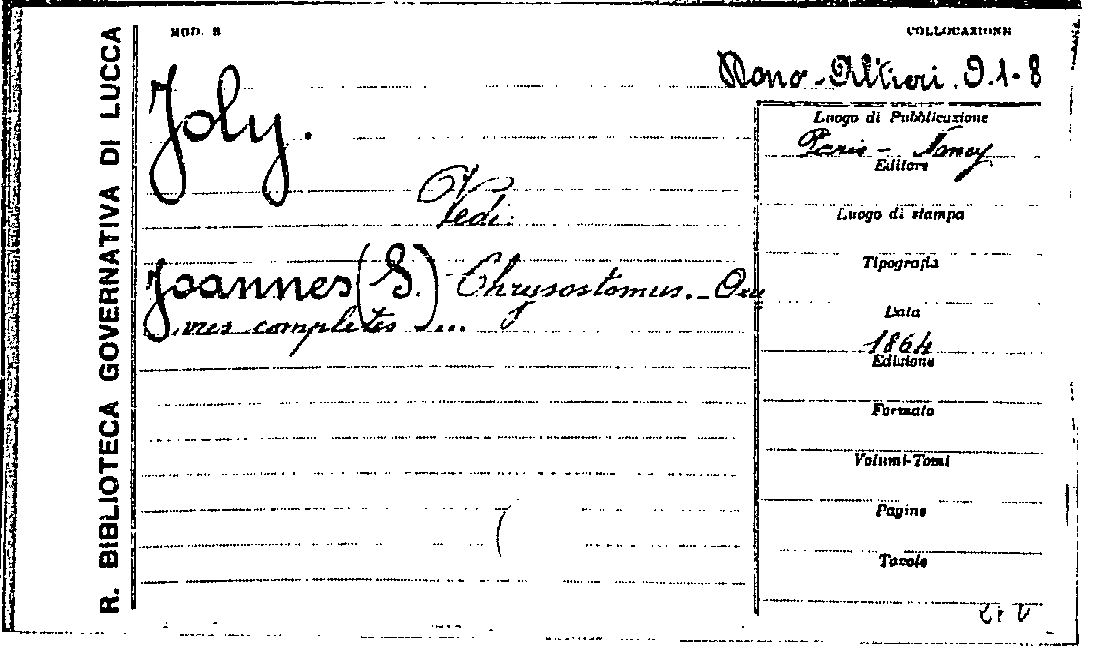 R. BIBLIOTECA GOVERNATIVA DI LUCCA
MOD. 8
COLLOCAZIONE
Dono-Altieri. D.1-8
Joly.
Vedi:
Joannes (S.) Chrysostomus. - Oeu
vres complètes ....
Luogo di Pubblicazione
Paris - Nancy
Editore
Luogo di stampa
Tipografia
Data
1864
Edizione
Formato
Volumi-Tomi
Pagine
Tavole